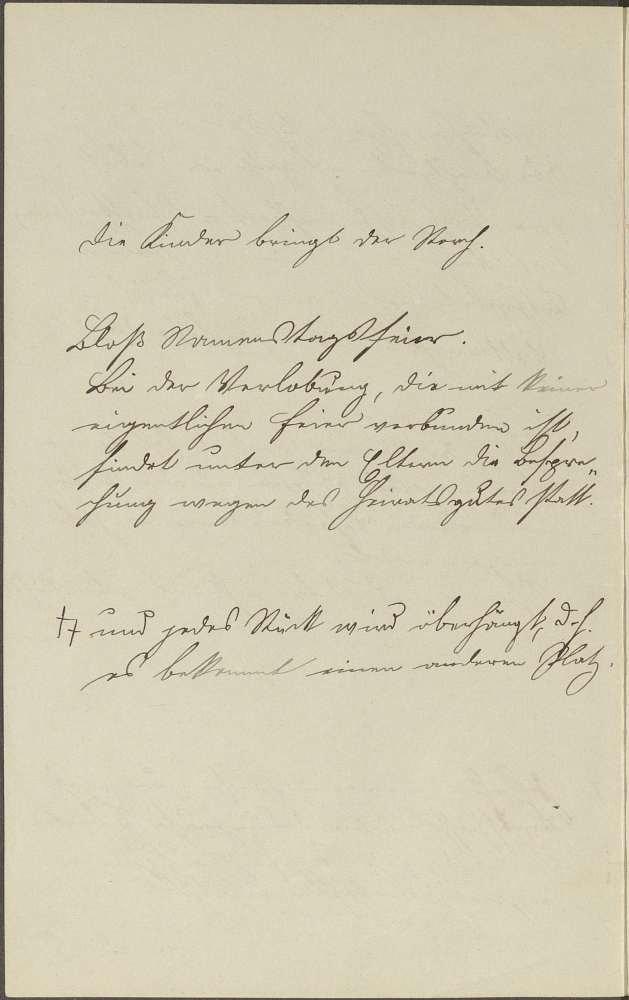 Die Kinder bringt der Storch.
Bloß Namenstagsfeier.
Bei der Verlobung, die mit keiner
eigentlichen Feier verbunden ist,
findet unter den Eltern die Bespre„
chung wegen des Heiratsgutes statt.
und jedes Stück wird überhängt, d. h.
es bekommt einen anderen Platz.